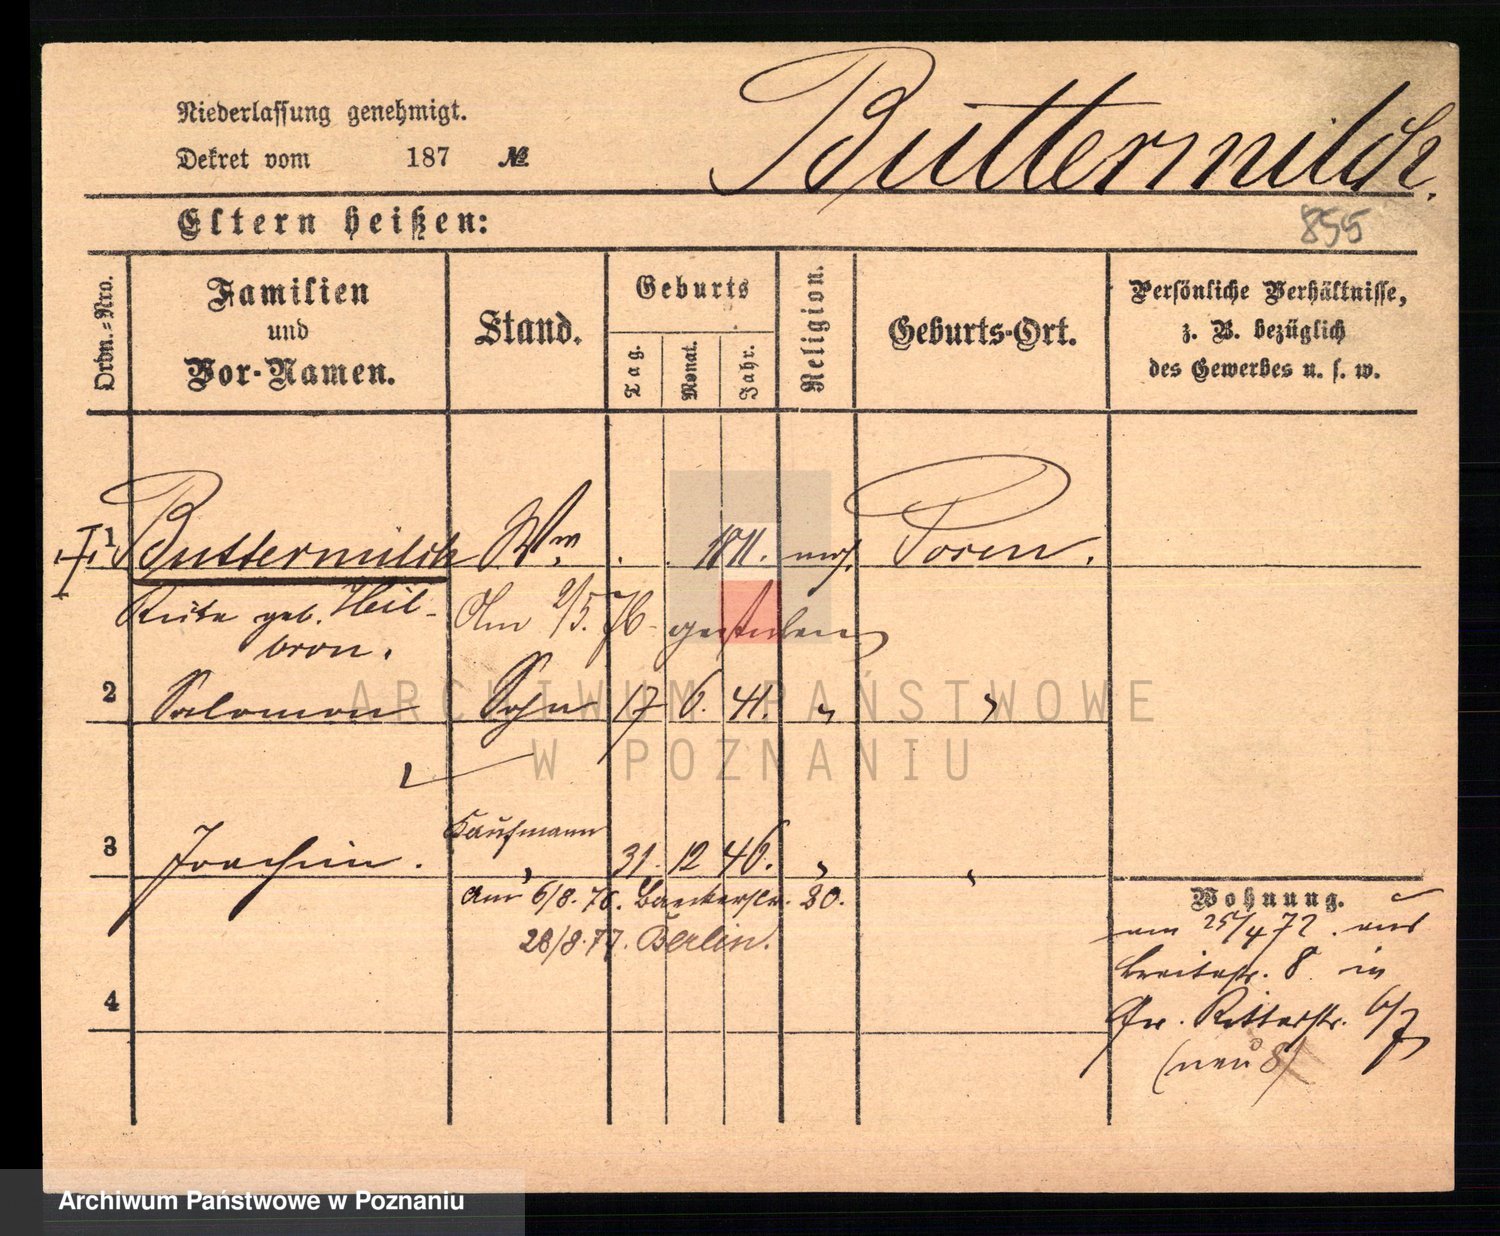 Niederlassung genehmigt.
Dekret vom 187 №
Buttermilch.
Eltern heißen:
855
Ordn.-Nro.
Familien
und
Vor-Namen.
Stand.
Geburts
Tag.
Monat.
Jahr.
Religion.
Geburts-Ort.
Persönliche Verhältnisse,
z. B. bezüglich
des Gewerbes u. s. w.
1 Buttermilch Ww. 1811. mos. Posen.
geb. Heil-
bron.
Am 2/5. 76 gestorben
2 Salomon Sohn 17 6. 41. " "
Kaufmann
3 Joachim. " 31. 12 46. " "
am 6/8. 76. Baeckerstr. 20.
28/8. 77. Berlin.
4
Wohnung.
am 25/4 72. aus
Breitestr. 8 in
Gr. Ritterstr. 6/7
(neu 8)
ARCHIWUM PAŃSTWOWE
W POZNANIU
Archiwum Państwowe w Poznaniu